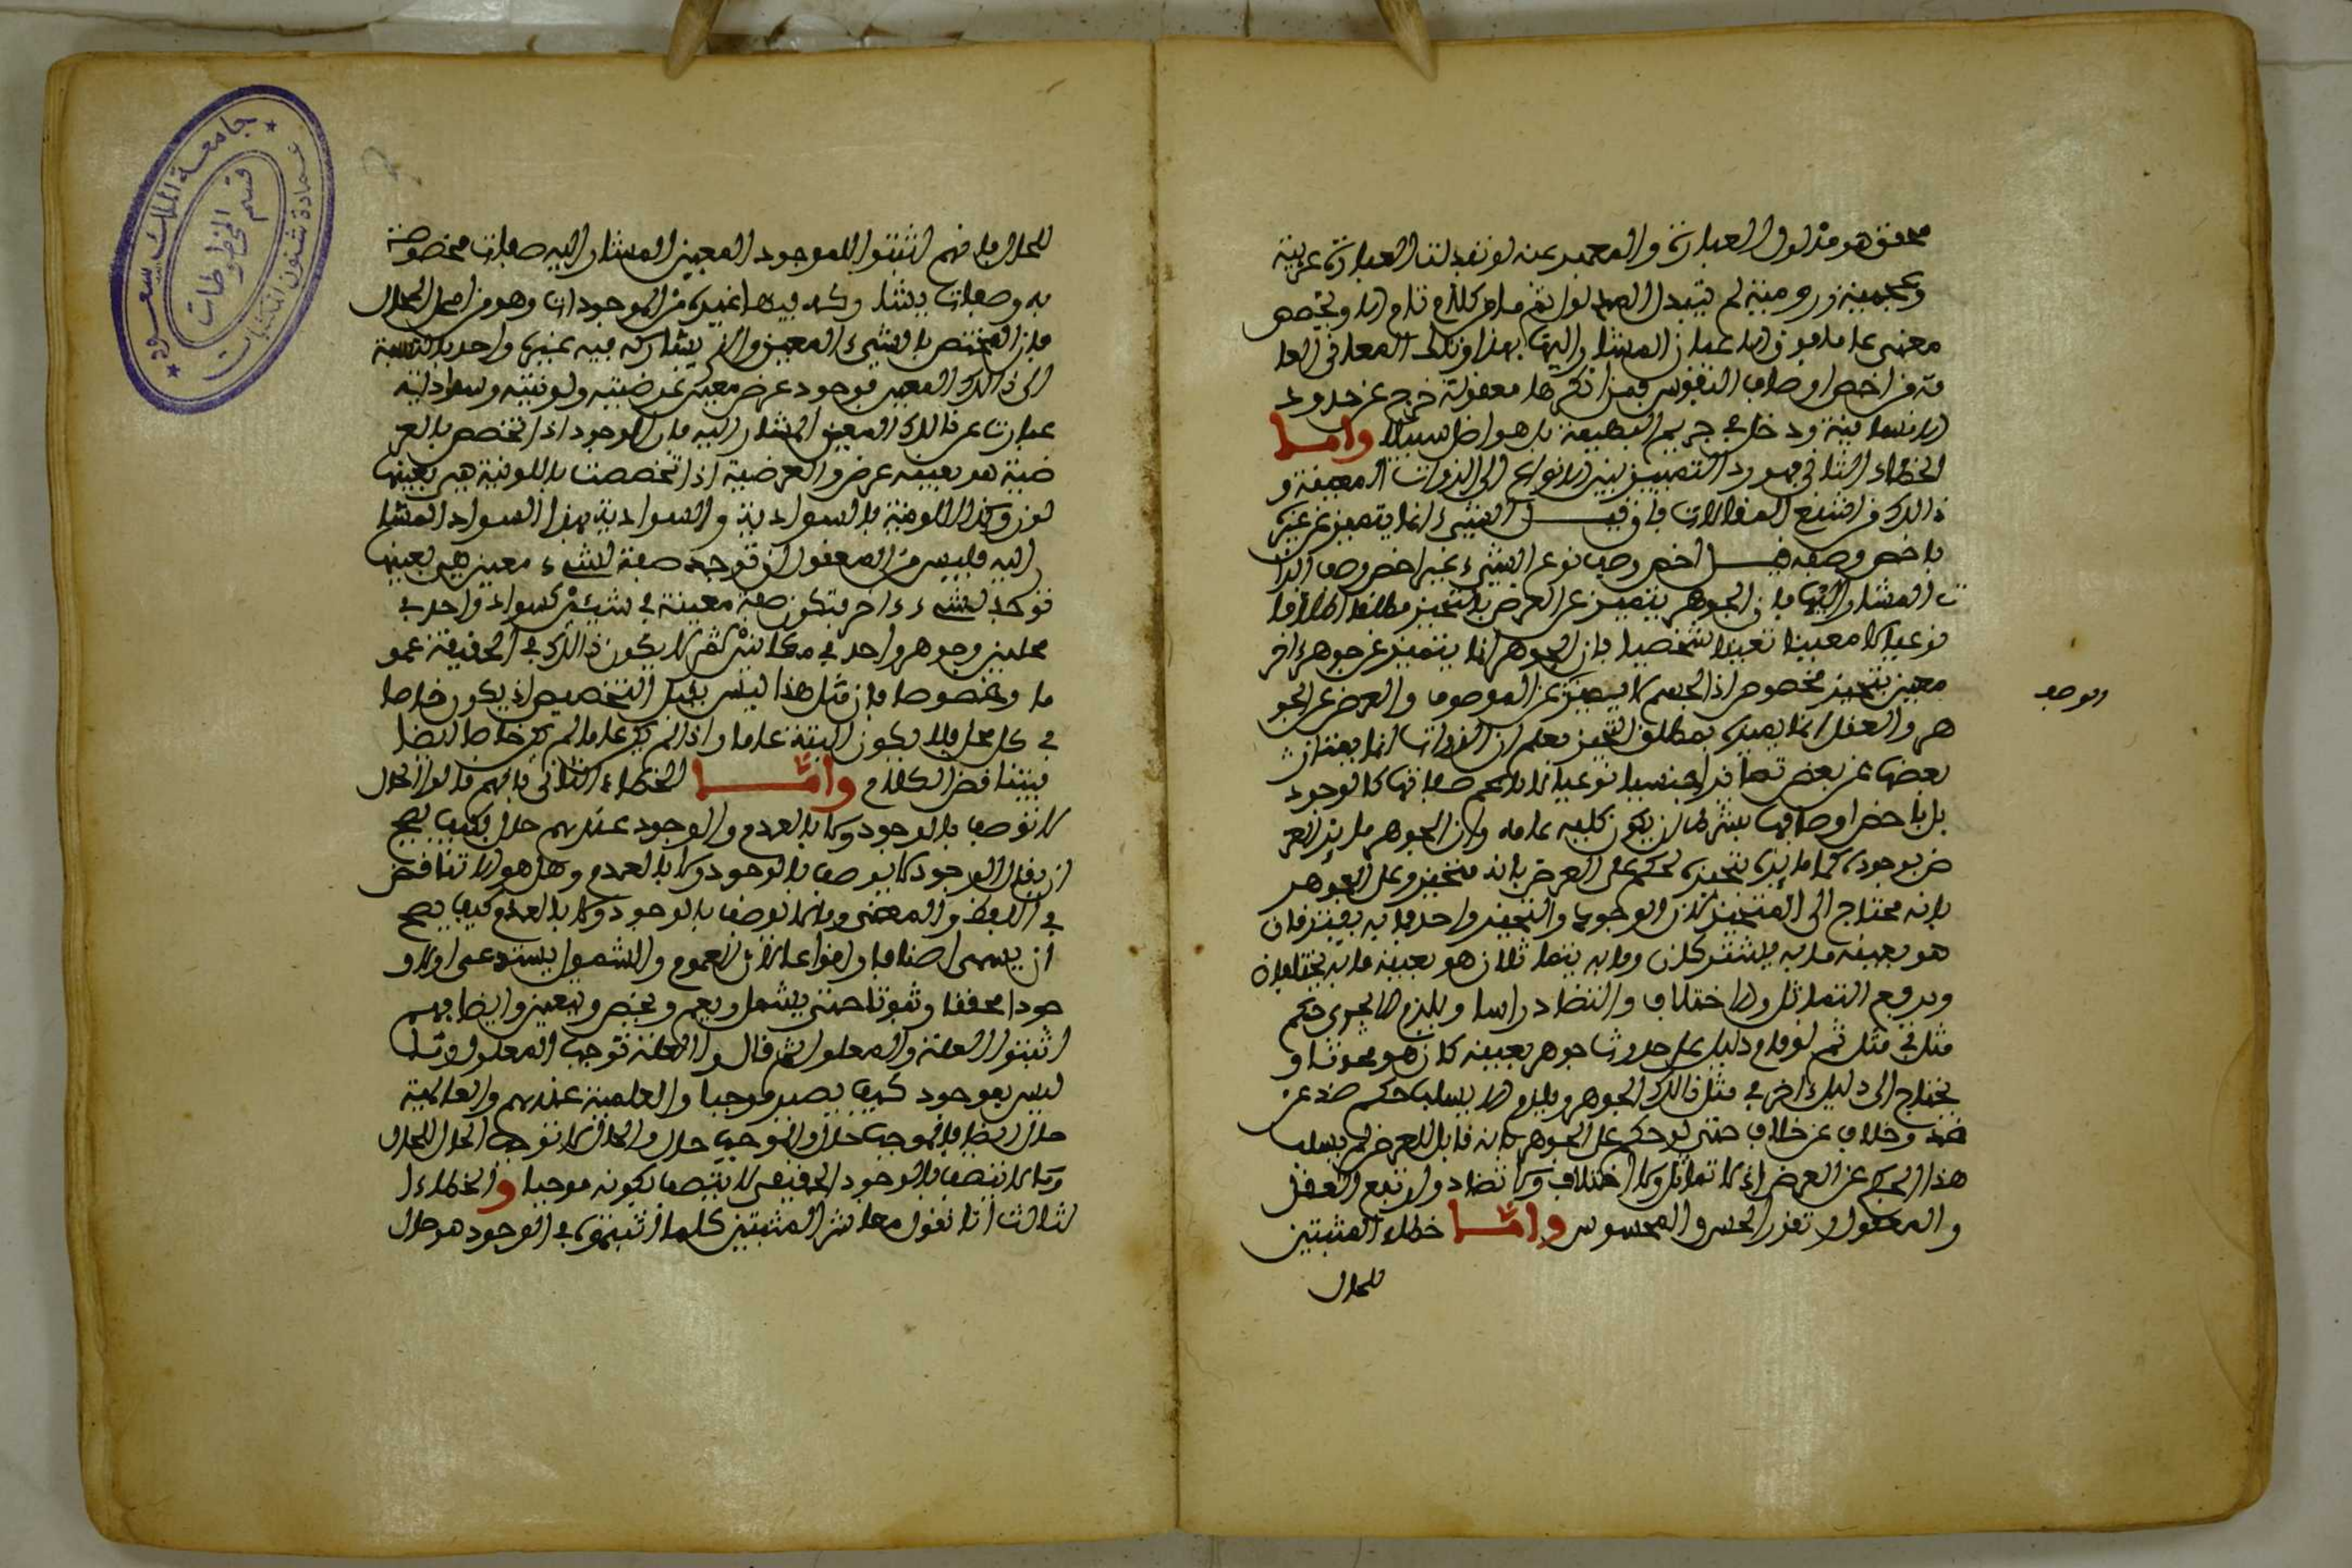 محقق هو مدلول العبارة والمعبر عنه لو تبدلت العبارة عربية
وعجمية ورومية لم يتبدل المدلول ثم ما من كلام تام الا ويتضمن
معنى عاما فوق الاعيان المشار اليها بهذا وتلك المعاني العا
مة من اخص اوصاف النفوس فمن انكرها معقولة خرج عن حدود
الانسانية ودخل في حريم البهيمة بل هو اضل سبيلا واما
الخطاء الثاني فهو رد التمييز بين الانواع الى الذوات المعينة و
ذالك من اشنع المقالات فان قيل الشيء انما يتميز عن غيره
باخص وصفه قيل اخص وصف نوع الشيء غير اخص وصف الذا
ت المشار اليها فان الجوهر يتميز عن العرض بالتحيز مطلقا اطلاقا
نوعيا لا معينا تعيينا شخصيا فان الجوهر انما يتميز عن جوهر اخر
معين بتحيز مخصوص اذ الجسم لا يميز عن الموصوف والعرض عن الجو
هر والعقل انما يميزه بمطلق التحيز فعلم ان الذوات انما يمتاز
بعضها عن بعض تمايزا جنسيا نوعيا لا باعم صفاتها كالوجود
بل باخص اوصافها بشرط ان يكون كليه عامه ولان الجوهر ما يز العر
ض بوجوده كما مايزه بتحيزه لحكم على العرض بانه متحيز وعلى الجوهر
بانه محتاج الى المتحيز لان الوجود والتحيز واحد فما به يفترقان
هو بعينه ما به يشتركان وما به يتماثلان هو بعينه ما به يختلفان
ويرفع التماثل والاختلاف والتضاد راسا ويلزم الا يجري حكم
مثل في مثل ثم لو قام دليل على حدوث جوهر بعينه كان هو محدثا و
يحتاج الى دليل اخر في مثل ذالك الجوهر ويلزم الا يسلب حكم ضد عن
ضد وخلاف عن خلاف حتى لو حكم على الجوهر بانه قابل للعرض لم يسلب
هذا الحكم عن العرض اذ لا تماثل ولا اختلاف ولا تضاد وارتفع العقل
والمعقول وتعذر الحس والمحسوس واما خطاء المثبتين
للحال
والوصف
للحال فانهم اثبتوا للموجود المعين المشار اليه صفات مخصوصة
به وصفات يشاركه فيها غيره من الموجودات وهو من امحل المحال
فان المختص بالشيء المعين والذي يشاركه فيه غيره واحد بالنسبة
الى ذالك المعين فوجود عرض معين وعرضيته ولونيته وسواديته
عبارات عن ذالك المعين المشار اليه فان الوجود اذا تخصص بالعر
ضية هو بعينه عرض والعرضية اذا تخصصت باللونية هي بعينها
لون وكذا اللونية بالسوادية والسوادية بهذا السواد المشار
اليه فليس من المعقول ان توجد صفة لشيء معين هي بعينها
توجد لشيء اخر فتكون صفة معينة في شيئين كسواد واحد في
محلين وجوهر واحد في مكانين ثم لا يكون ذالك في الحقيقة عمو
ما وخصوصا فان مثل هذا ليس يقبل التخصيص اذ يكون خاصا
في كل محل فلا يكون البتة عاما واذا لم يكن عاما لم يكن خاصا ايضا
فيتناقض الكلام واما الخطاء الثاني فانهم قالوا الحال
لا توصف بالوجود ولا بالعدم والوجود عندهم حال فكيف يصح
ان يقال الوجود لا يوصف بالوجود ولا بالعدم وهل هو الا تناقض
في اللفظ والمعنى وما لا يوصف بالوجود ولا بالعدم كيف يصح
ان يسمى اصنافا وانواعا لان العموم والشمول يستدعي اولا و
جودا محققا وثبوتا حتى يشمل ويعم ويخص ويعين وايضا فهم
اثبتوا العلة والمعلول ثم قالوا العلة توجب المعلول وما
ليس بموجود كيف يصير موجبا والعلمية عندهم والعالمية
حال ايضا فالموجب حال والموجب حال والحال لا توجب الحال لان
وما لا يتصف بالوجود الحقيقي لا يتصف بكونه موجبا والخطاء ا
لثالث انا نقول معاشر المثبتين كلما اثبتموه في الوجود هو حال
جامعة الملك سعود
عمادة شئون المكتبات
قسم المخطوطات